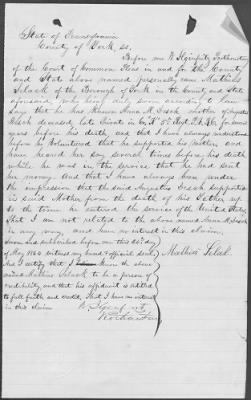 State of Pennsylvania
County of York, ss.
Before me
of the Court of Common Pleas in and for the County
and State above named personally came Mathias
Selack of the Borough of York in the County and State
aforesaid, who being duly sworn according to law
says that he has known Anna M. Isack mother of Augustus
Isack deceased, late Private in Co. 87 Regt. P. V. for some
years before his death, and that I have always understood
before he Volunteered that he supported his Mother and
have heard her say several times before his death
while he was in the service that he had sent
her money. And that I have always been under
the impression that the said Augustus Isack supported
his said Mother from the death of his Father up
to the time he entered the service of the United States,
That I am not related to the above named Anna M. Isack
in any way, and have no interest in this claim,
Sworn and subscribed before me this day
of May 1864 witness my hand & official seal.
And I certify that I know the above
named Mathias Selack to be a person of
credibility, and that his affidavit is entitled
to full faith and credit, That I have no interest
in this claim
Mathias Selak